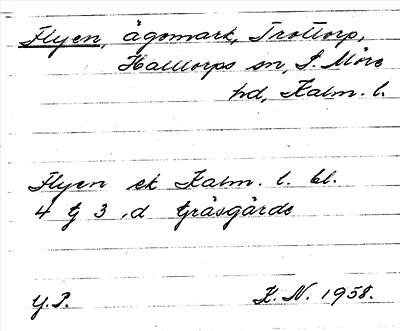 Flyen, ägomark, Trottorp,
Halltorps sn, S. Möre
hd, Kalm. l.
Flyen ek Kalm. l. bl.
4 g 3 d Gräsgärde
Y.P.
K.N. 1958.